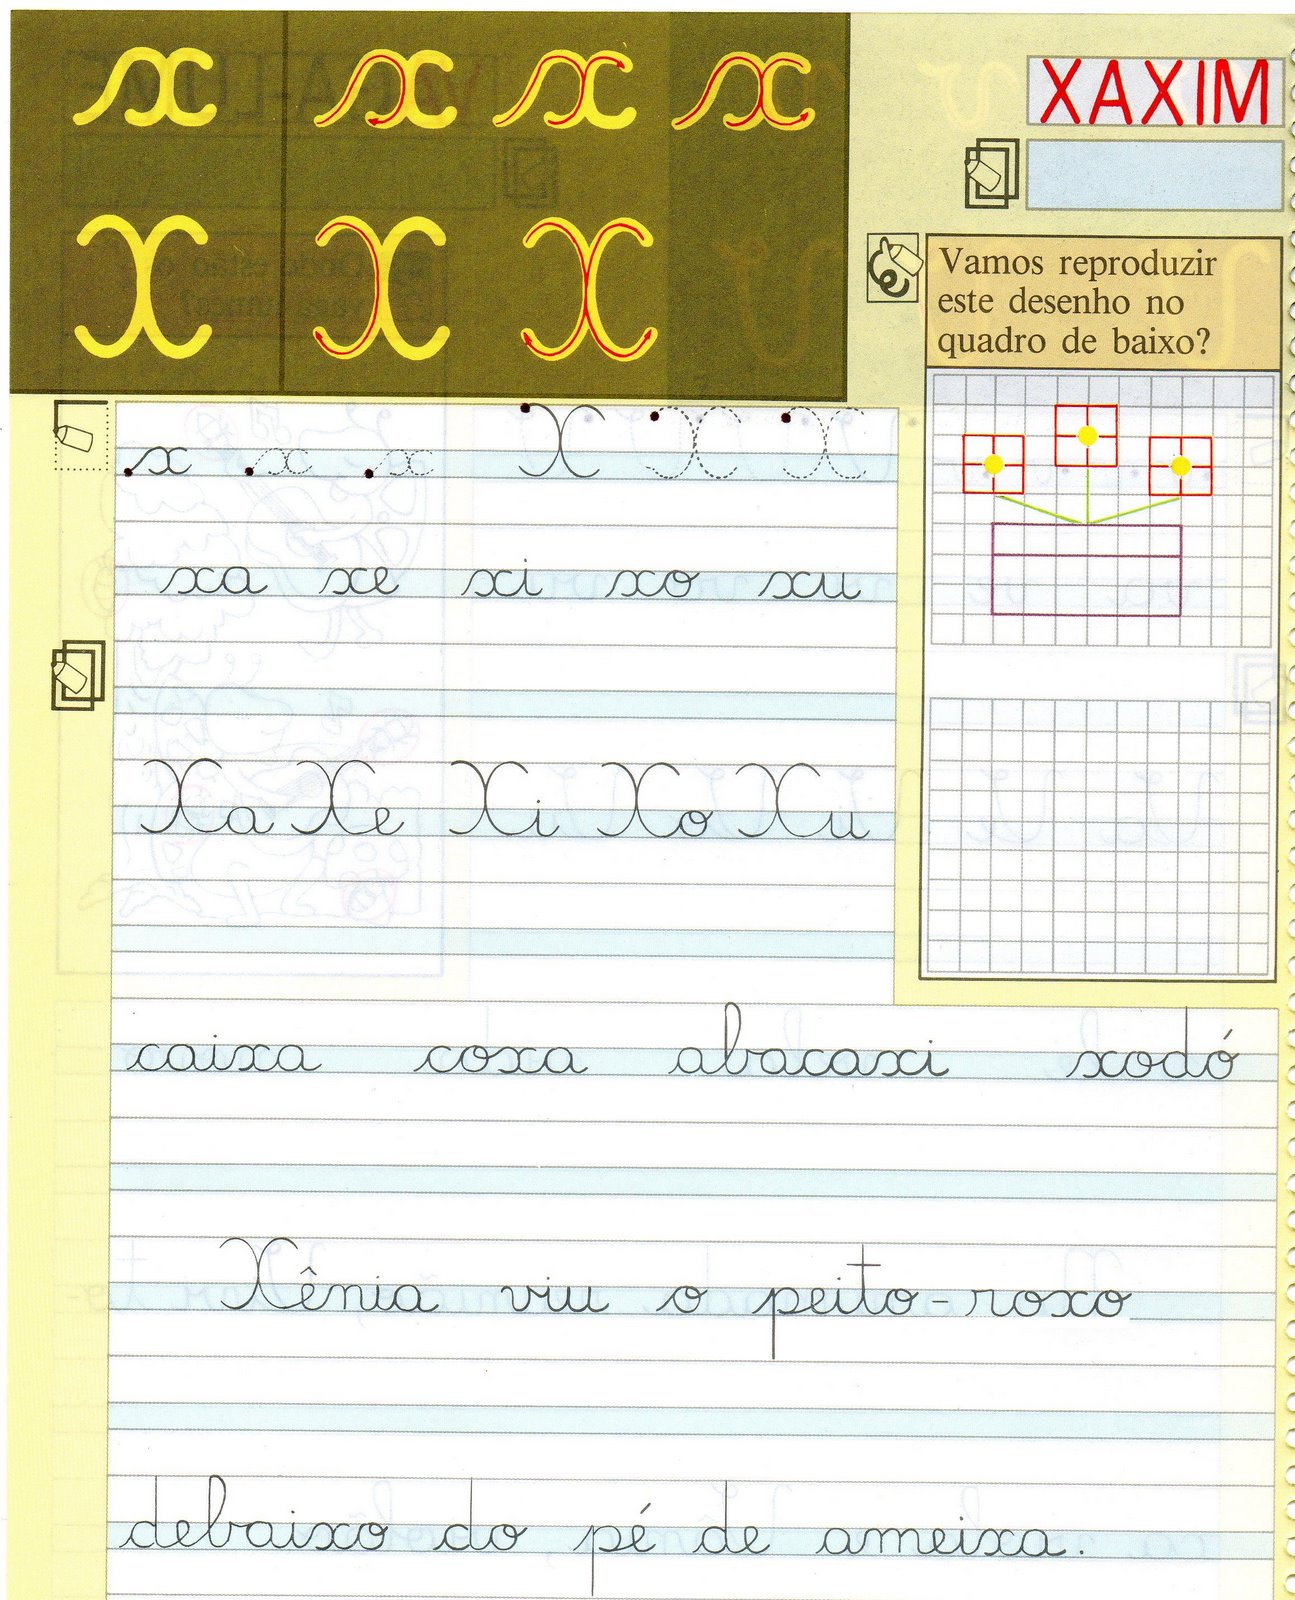 x x x x
XAXIM
X X X
Vamos reproduzir
este desenho no
quadro de baixo?
x x x X X X
xa xe xi xo xu
Xa Xe Xi Xo Xu
caixa coxa abacaxi xodó
Xênia viu o peito-roxo
debaixo do pé de ameixa.